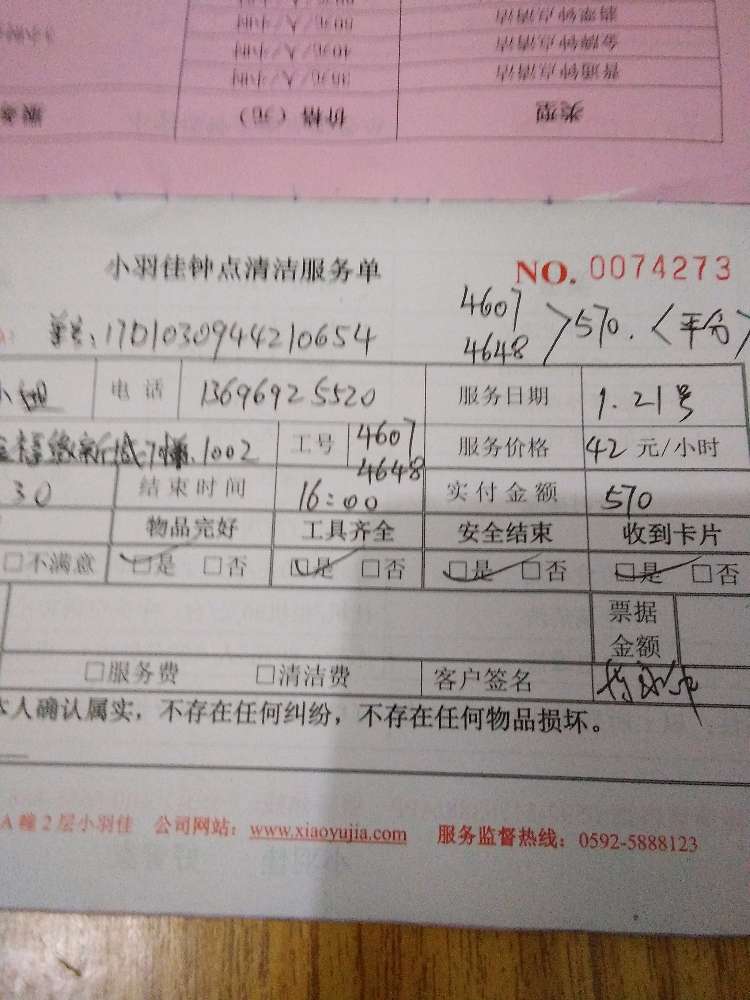 翡翠钟点清洁 80元/人/小时
金牌钟点清洁 40元/人/小时
普通钟点清洁 35元/人/小时
类型 价格（元） 服务
小羽佳钟点清洁服务单 NO. 0074273
单号: 1701030944210654 4607 4648 >570. <平分>
小姐 电话 13696925520 服务日期 1.21号
1002 工号 4607 4648 服务价格 42 元/小时
30 结束时间 16:00 实付金额 570
物品完好 工具齐全 安全结束 收到卡片
□不满意 □是 □否 □是 □否 □是 □否 □是 □否
票据金额
□服务费 □清洁费 客户签名
本人确认属实，不存在任何纠纷，不存在任何物品损坏。
A幢2层小羽佳 公司网站：www.xiaoyujia.com 服务监督热线：0592-5888123